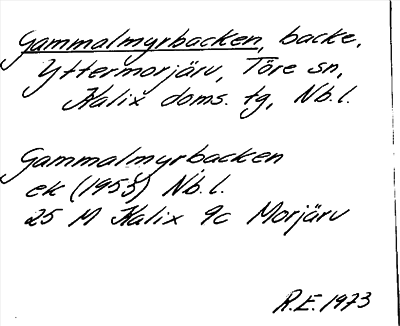 Gammalmyrbacken, backe,
Yttermorjärv, Töre sn,
Kalix doms. tg, Nb.l.
Gammalmyrbacken
ek (1955) Nb.l.
25 M Kalix 9c Morjärv
R.E. 1973